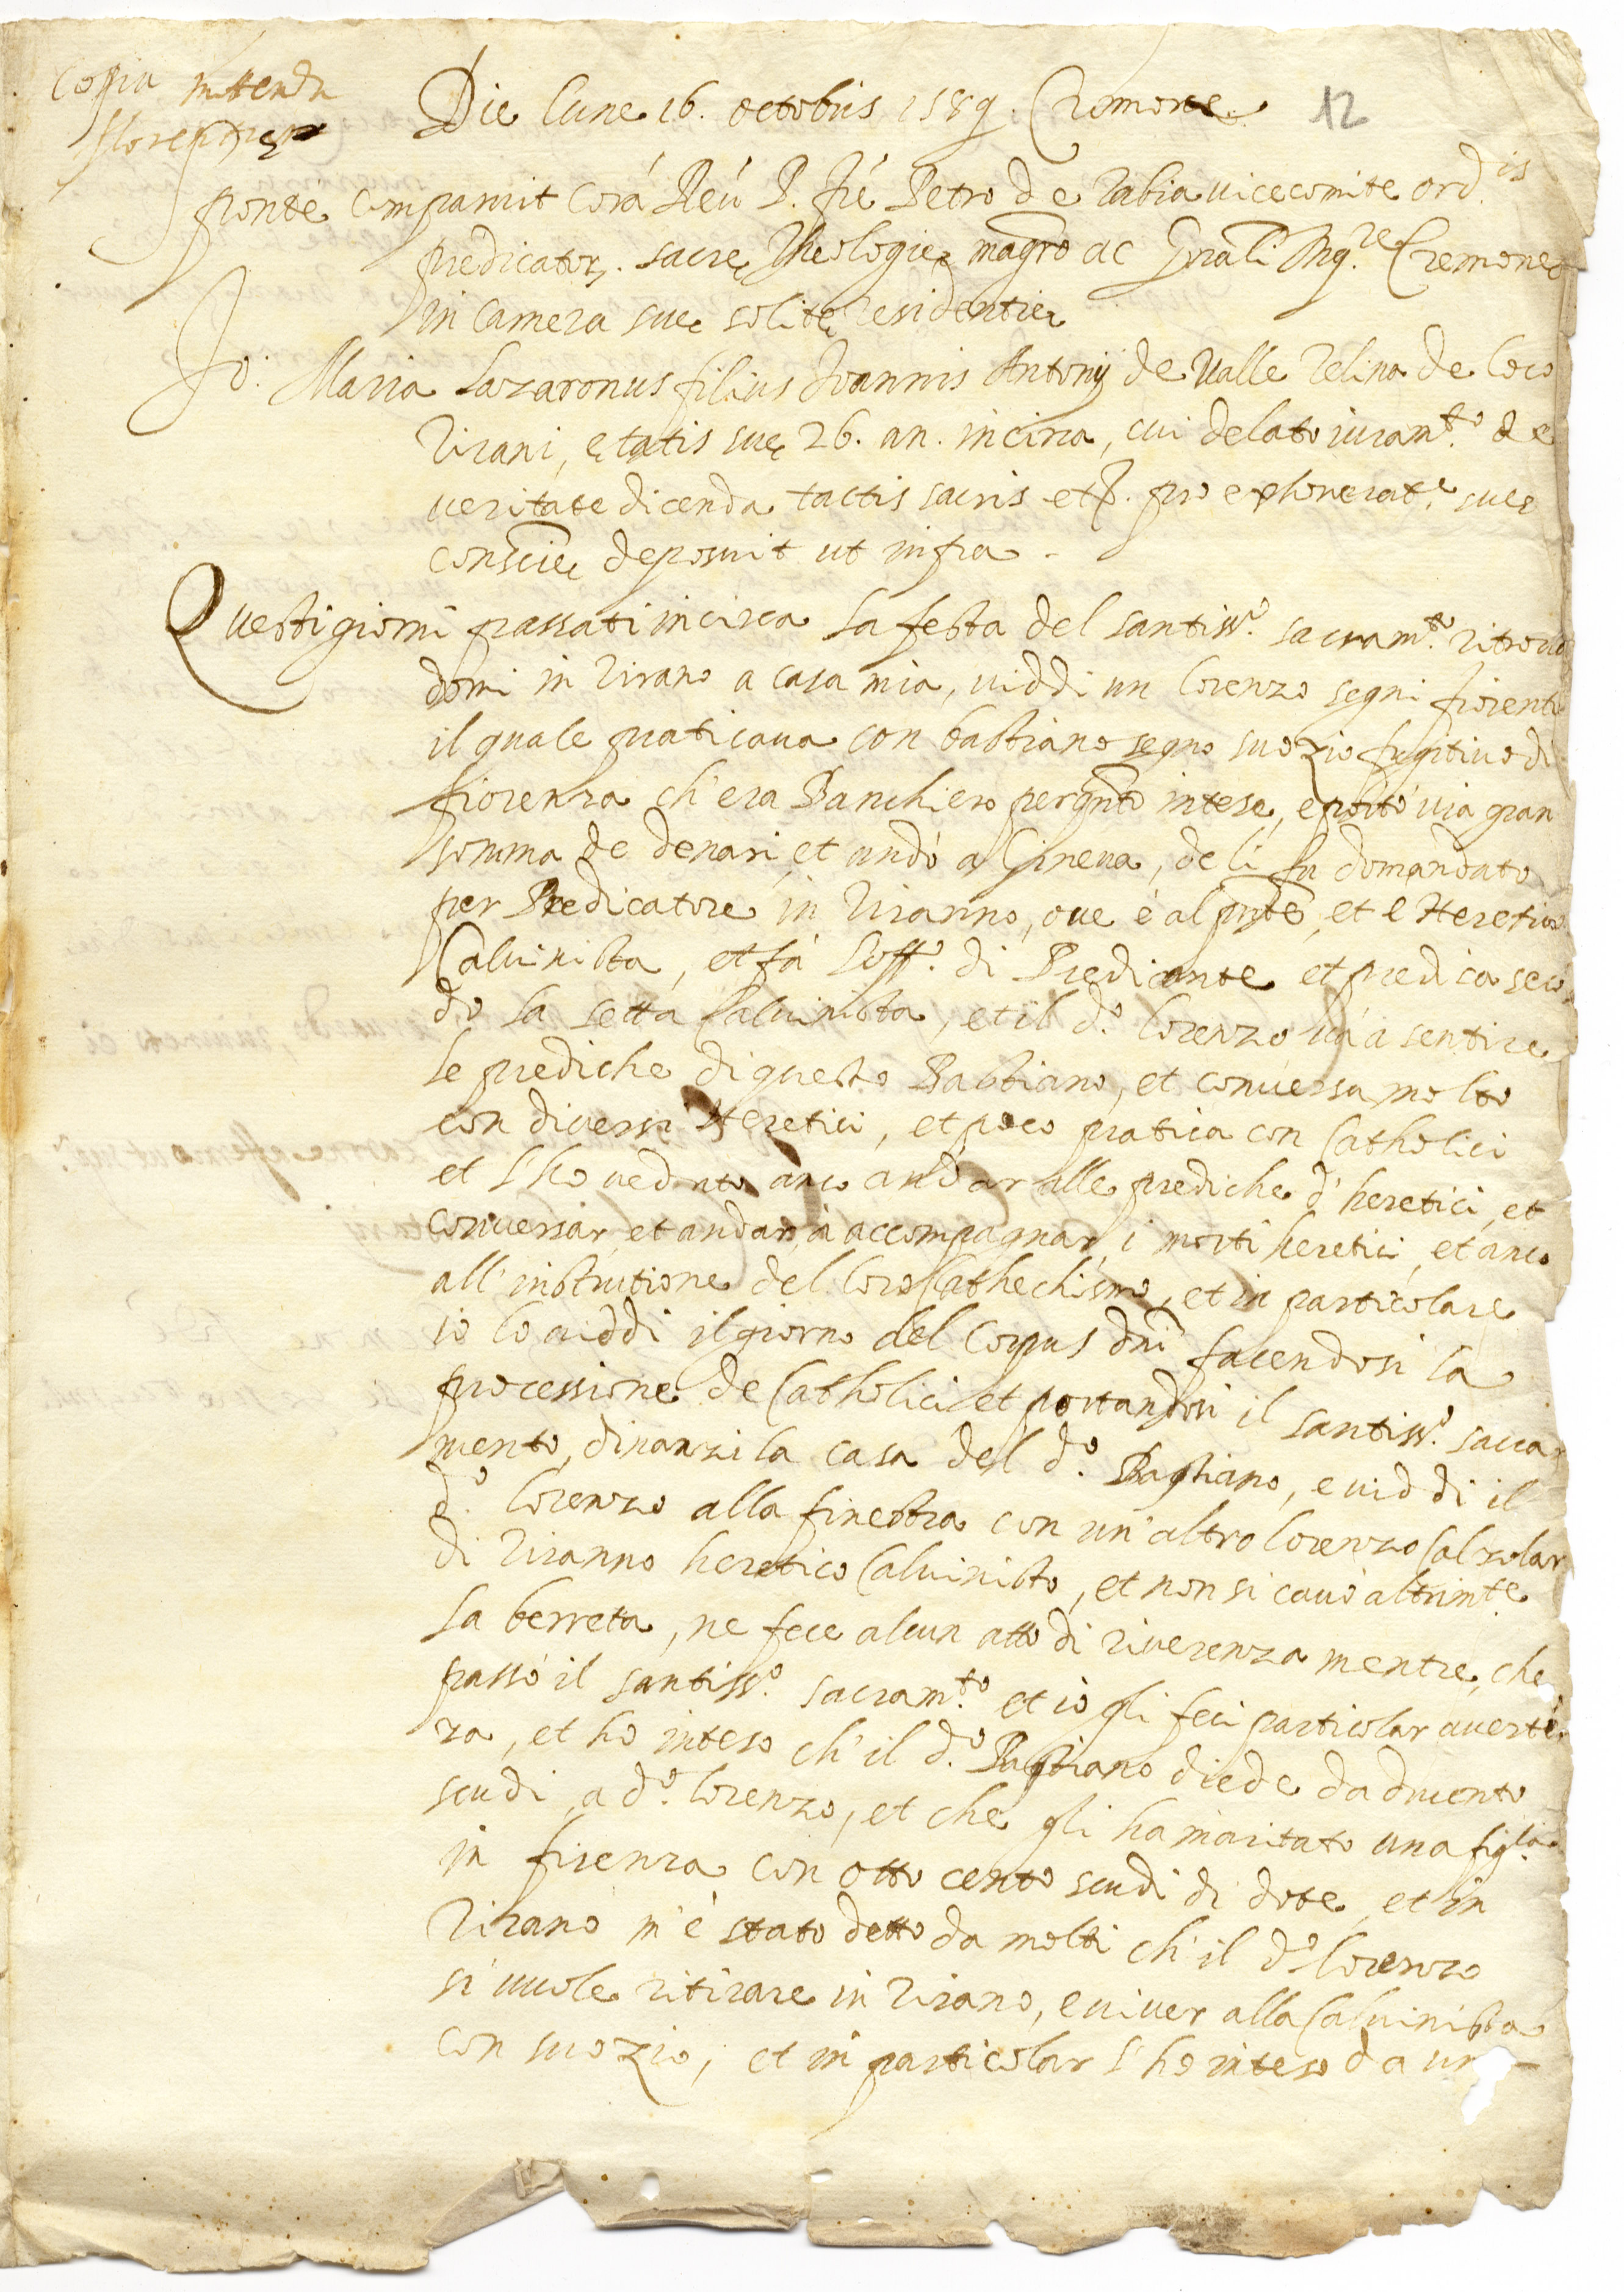 Copia mittenda
Die Lune 16. octobris 1589. Cremone.
12
sponte comparuit corá Reú P. fré Petro de Tabia vicecomite ord.is
predicator. sacrę Theologię magrõ ac Gñali Inq.re Cremonę
in camera suę solitę residentię
Jo: Maria Lazaronus filius Joannis Antonij de Valle Telina de loco
Tirani, ętatis suę 26. an. incirca, cui delato iuram.to de
veritate dicenda tactis sacris etc. pro exhonerat.e suę
consciẽ deposuit ut infra.
Questi giorni passati incirca la festa del santiss.o sacram.to ritrouã
domi in Tirano a casa mia, viddi un Lorenzo segni fiorent
il quale praticaua con bastiano segno suo zio fugitiuo di
fiorenza ch'era Banchiero per qnto intese, e portò via gran
somma de denari, et andò a Gineva, de li fu domandato
per Predicatore in Tiranno, oue è al pñte, et è Heretico
Caluinista, et fà l'off.o di Predicante et predica secõ
do la setta Caluinista, et il d.o Lorenzo và a sentire
le prediche di questo Bastiano, et conuersa molto
con diuersi Heretici, et poco pratica con Catholici
et l'ho ueduto anco andar alle prediche d'heretici, et
conuersar, et andar à accompagnar i morti heretici, et anco
all'instrutione del loro Cathechismo, et in particolare
io lo uiddi il giorno del Corpus dñi facendosi la
processione de Catholici et portandosi il santiss.o sacra
mento, dinanzi la casa del d.o Bastiano, e viddi il
d.o Lorenzo alla finestra con un'altro Lorenzo Calzolar
di Tiranno heretico Caluinisto, et non si cauò altrimte
la berreta, ne fece alcun atto di riuerenza mentre, che
passò il santiss.o sacram.to et io gli feci particolar auertẽ
za, et ho inteso ch'il d.o Bastiano diede da ducento
scudi a d.o Lorenzo, et che gli ha maritato una fig.la
in firenza con otto cento scudi di dote, et in
Tirano m'è stato detto da molti ch'il d.o Lorenzo
si uuole ritirare in Tirano, e uiuer alla Caluinista
con suo zio, et in particolar l'ho inteso da un